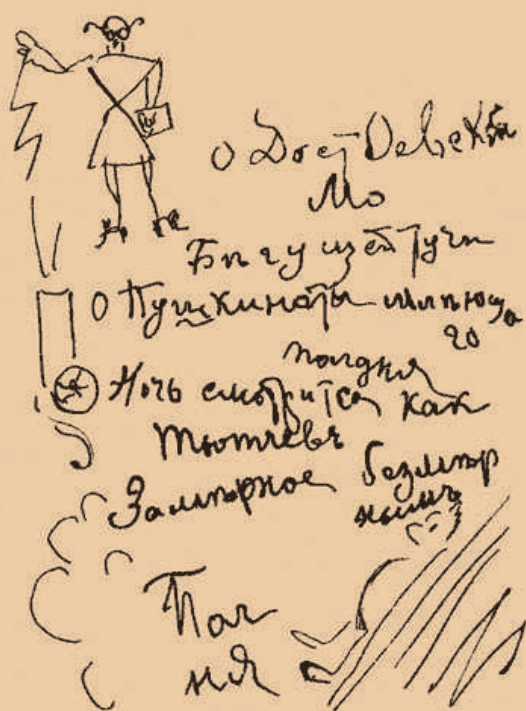 О ДостОевскій
Мо
Бѣгущей тучи
О Пушкиноты млѣюща
го
полдня
Ночь смотрится как
Тютчевъ
Замѣрное безмѣр
нымъ
Пол
ня